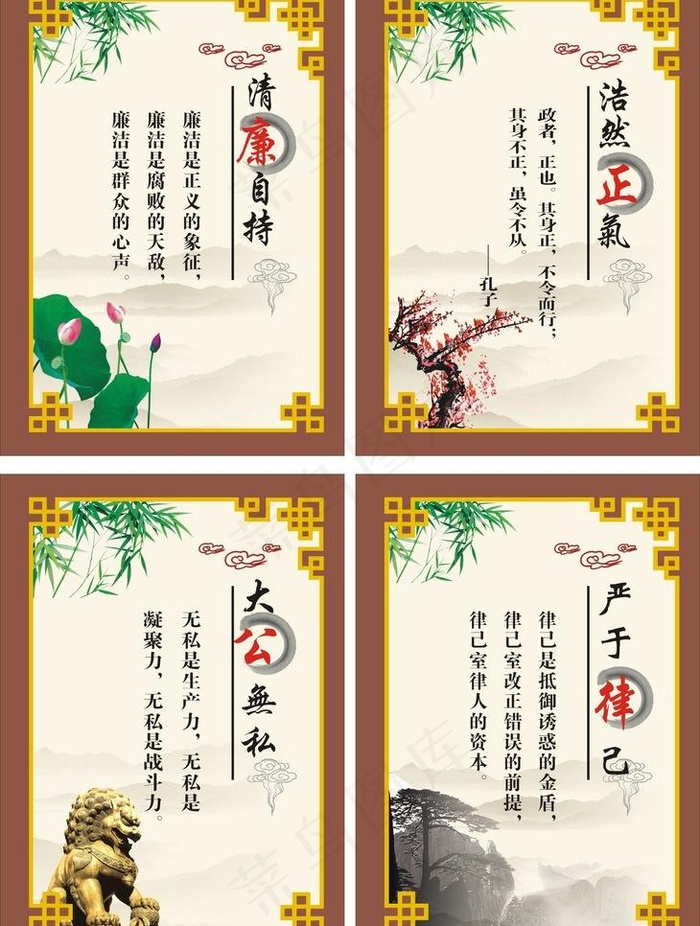 清廉自持
廉洁是正义的象征，
廉洁是腐败的天敌，
廉洁是群众的心声。
浩然正氣
政者，正也。其身正，不令而行；
其身不正，虽令不从。
——孔子
大公無私
无私是生产力，无私是
凝聚力，无私是战斗力。
严于律己
律己是抵御诱惑的金盾，
律己室改正错误的前提，
律己室律人的资本。
菜鸟图库